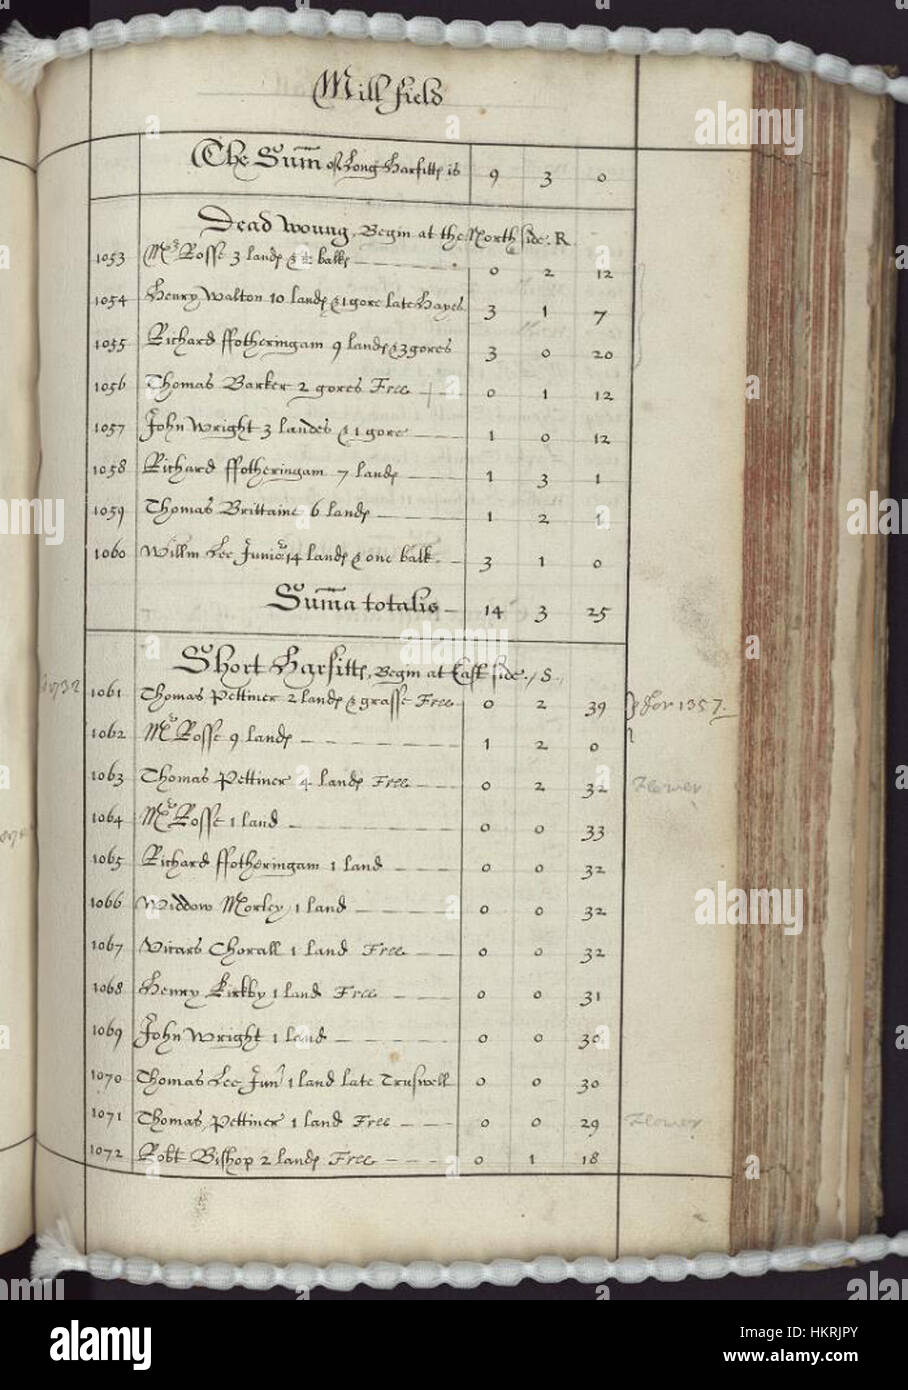 Mill field
The Summ of Long Harfitts is 9 3 0
Dead woung, Begin at the North side. R.
1053 Mrs Rosse 3 lands & balk 0 2 12
1054 Henry Walton 10 lands & 1 gore late Hayes 3 1 7
1055 Richard ffotheringam 9 lands & 3 gores 3 0 20
1056 Thomas Barker 2 gores Free 0 1 12
1057 John Wright 3 landes & 1 gore 1 0 12
1058 Richard ffotheringam 7 lands 1 3 1
1059 Thomas Brittaine 6 lands 1 2 1
1060 Willm Lee Junior 14 lands & one balk 3 1 0
Summa totalis 14 3 25
Short Harfitts, Begin at East side. S.
1732
1061 Thomas Pettiner 2 lands & grasse Free 0 2 39 for 1357.
1062 Mrs Rosse 9 lands 1 2 0
1063 Thomas Pettiner 4 lands Free 0 2 32 Flower
1064 Mrs Rosse 1 land 0 0 33
1065 Richard ffotheringam 1 land 0 0 32
1066 Widdow Morley 1 land 0 0 32
1067 Vicars Chorall 1 land Free 0 0 32
1068 Henry Kirkby 1 land Free 0 0 31
1069 John Wright 1 land 0 0 30
1070 Thomas Lee Junr 1 land late Truswell 0 0 30
1071 Thomas Pettiner 1 land Free 0 0 29 Flower
1072 Robt Bishop 2 lands Free 0 1 18
alamy
Image ID: HKRJPY
www.alamy.com